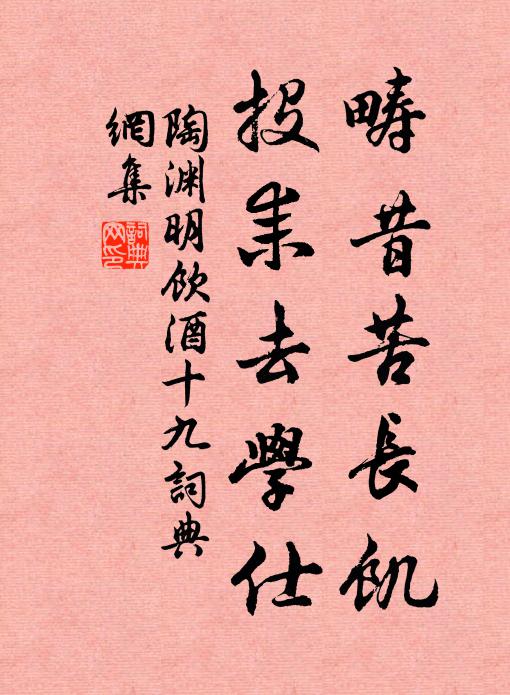 疇昔苦長飢
投耒去學仕
陶渊明飲酒十九詞典
網集
詞典
网印